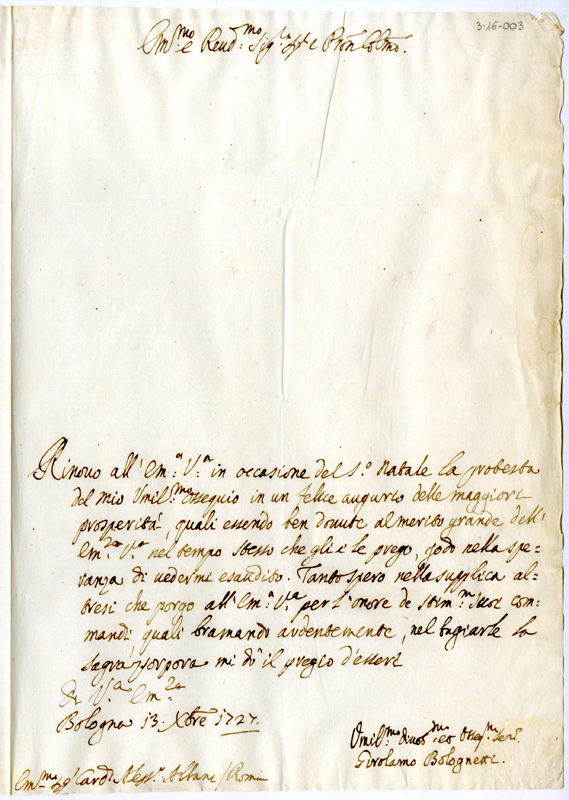 3-16-003
Em:mo e Reud:mo Sig:r Sig:r e Pron Colmo.
Rinouo all'Em:a V:a in occasione del S:o Natale la protesta
del mio Umil:mo ossequio in un felice augurio delle maggiori
prosperità, quali essendo ben douute al merito grande dell'
Em:za V:a nel tempo stesso che gli è le prego, godo nella spe-
ranza di uedermi esaudito. Tanto spero nella supplica al-
tresi che porgo all'Em:a V:a per l'onore de stim:mi suoi com-
mandi, quali bramando ardentemente, nel bagiarle la
sagra porpora mi dò il pregio d'essere
Di V:a Em:za
Bologna 13. Xbre 1727.
Umil:mo Diuot:mo et Osseq:mo Ser:
Girolamo Bolognetti.
Em:mo Sig:r Card: Aless:o Albani / Roma